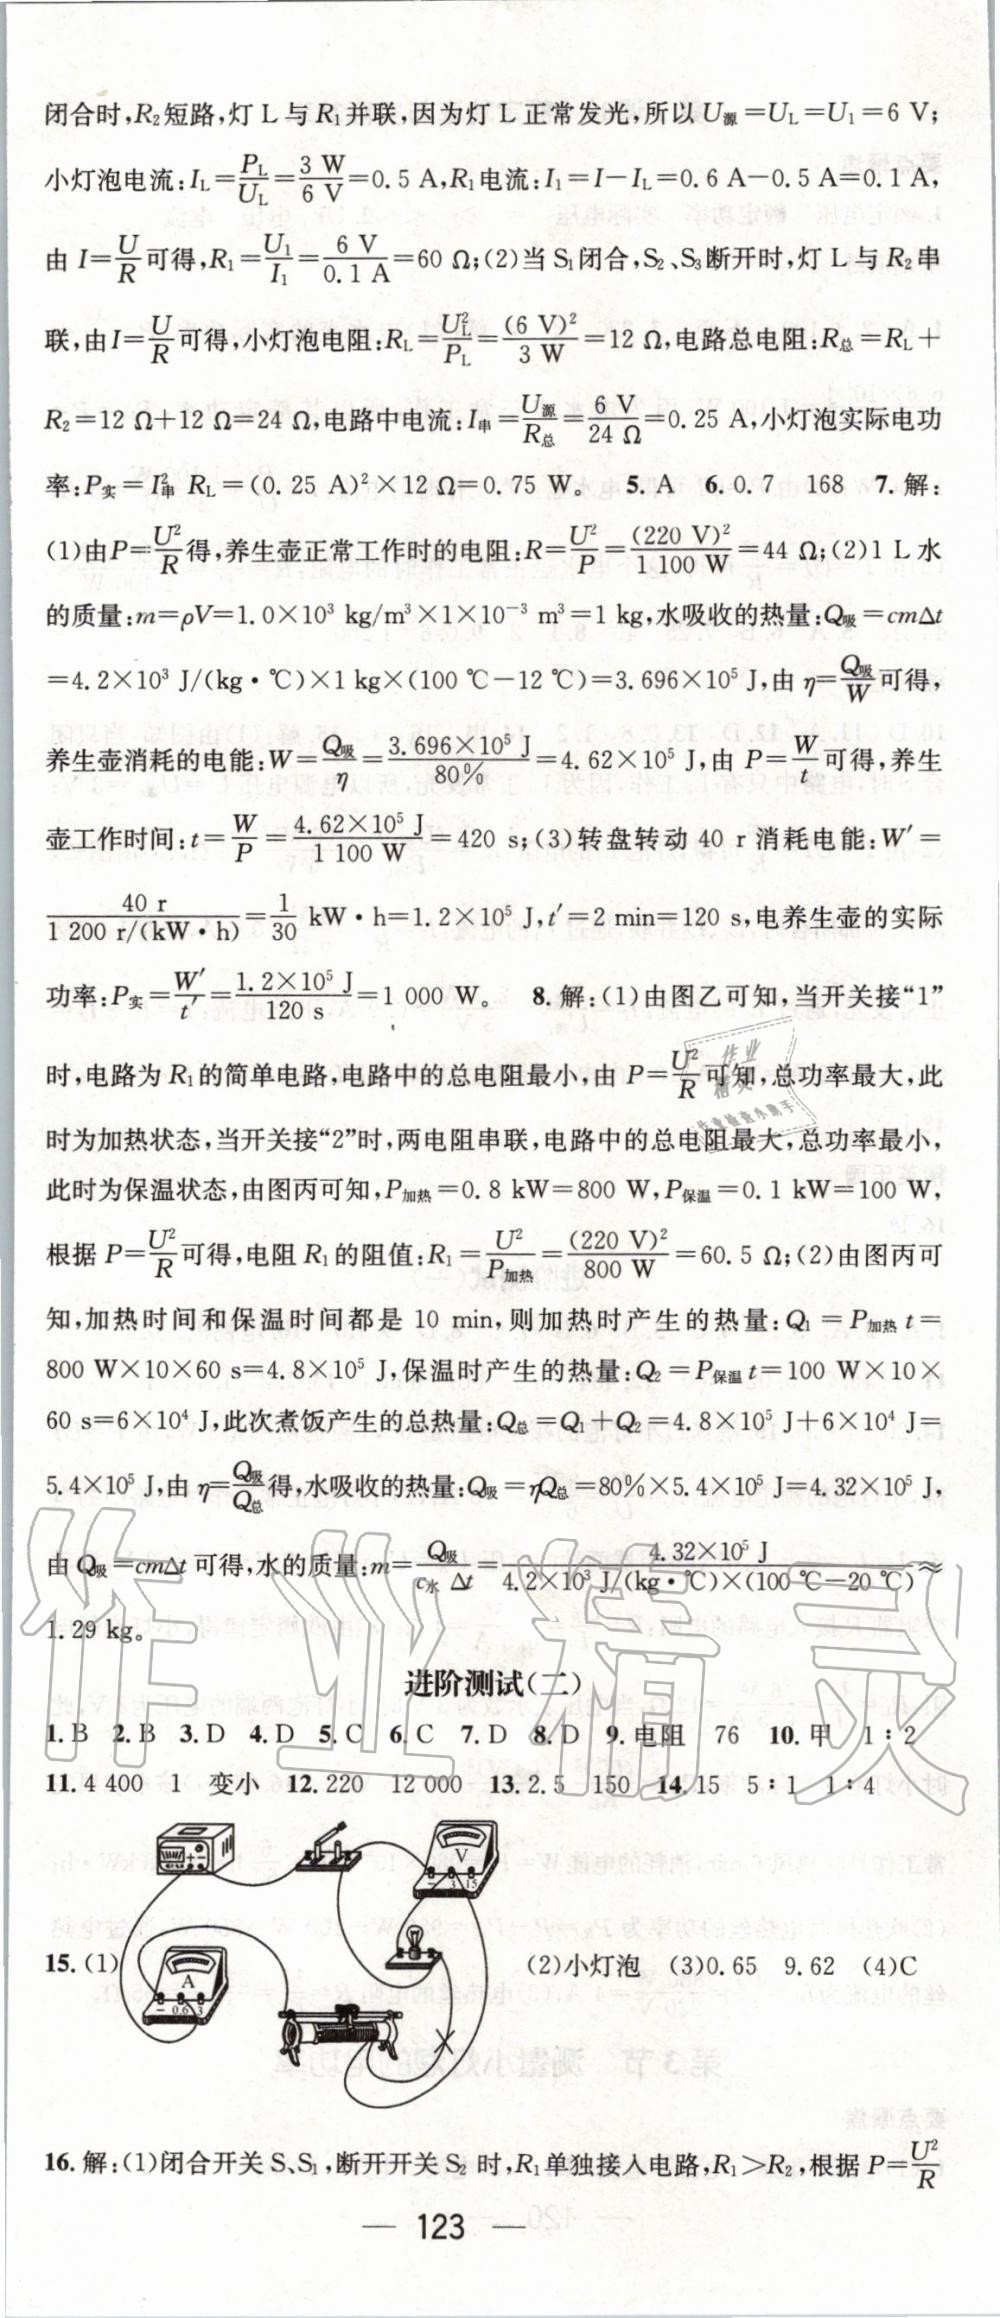 闭合时,R₂短路,灯 L 与 R₁并联,因为灯 L 正常发光,所以 U源=U_L=U₁=6 V;
小灯泡电流:I_L=P_L/U_L=3 W/6 V=0.5 A,R₁电流:I₁=I-I_L=0.6 A-0.5 A=0.1 A,
由 I=U/R可得,R₁=U₁/I₁=6 V/0.1 A=60 Ω;(2)当 S₁闭合,S₂、S₃断开时,灯 L 与 R₂串
联,由I=U/R可得,小灯泡电阻:R_L=U_L²/P_L=(6 V)²/3 W=12 Ω,电路总电阻:R总=R_L+
R₂=12 Ω+12 Ω=24 Ω,电路中电流:I串=U源/R总=6 V/24 Ω=0.25 A,小灯泡实际电功
率:P实=I串² R_L=(0.25 A)²×12 Ω=0.75 W。 5.A 6.0.7 168 7.解:
(1)由P=U²/R得,养生壶正常工作时的电阻:R=U²/P=(220 V)²/1 100 W=44 Ω;(2)1 L 水
的质量:m=ρV=1.0×10³ kg/m³×1×10⁻³ m³=1 kg,水吸收的热量:Q吸=cmΔt
=4.2×10³ J/(kg·℃)×1 kg×(100 ℃-12 ℃)=3.696×10⁵ J,由 η=Q吸/W可得,
养生壶消耗的电能:W=Q吸/η=3.696×10⁵ J/80%=4.62×10⁵ J,由 P=W/t可得,养生
壶工作时间:t=W/P=4.62×10⁵ J/1 100 W=420 s;(3)转盘转动 40 r 消耗电能:W′=
40 r/1 200 r/(kW·h)=1/30 kW·h=1.2×10⁵ J,t′=2 min=120 s,电养生壶的实际
功率:P实=W′/t′=1.2×10⁵ J/120 s=1 000 W。 8.解:(1)由图乙可知,当开关接“1”
时,电路为 R₁的简单电路,电路中的总电阻最小,由 P=U²/R可知,总功率最大,此
时为加热状态,当开关接“2”时,两电阻串联,电路中的总电阻最大,总功率最小,
此时为保温状态,由图丙可知,P加热=0.8 kW=800 W,P保温=0.1 kW=100 W,
根据 P=U²/R可得,电阻 R₁的阻值:R₁=U²/P加热=(220 V)²/800 W=60.5 Ω;(2)由图丙可
知,加热时间和保温时间都是 10 min,则加热时产生的热量:Q₁=P加热 t=
800 W×10×60 s=4.8×10⁵ J,保温时产生的热量:Q₂=P保温 t=100 W×10×
60 s=6×10⁴ J,此次煮饭产生的总热量:Q总=Q₁+Q₂=4.8×10⁵ J+6×10⁴ J=
5.4×10⁵ J,由 η=Q吸/Q总得,水吸收的热量:Q吸=ηQ总=80%×5.4×10⁵ J=4.32×10⁵ J,
由 Q吸=cmΔt 可得,水的质量:m=Q吸/c水 Δt=4.32×10⁵ J/4.2×10³ J/(kg·℃)×(100 ℃-20 ℃)≈
1.29 kg。
进阶测试(二)
1.B 2.B 3.D 4.D 5.C 6.C 7.D 8.D 9.电阻 76 10.甲 1∶2
11.4 400 1 变小 12.220 12 000 13.2.5 150 14.15 5∶1 1∶4
V
- 3 15
15.(1) (2)小灯泡 (3)0.65 9.62 (4)C
A
- 0.6 3
16.解:(1)闭合开关 S、S₁,断开开关 S₂ 时,R₁单独接入电路,R₁>R₂,根据 P=U²/R
— 123 —
作业精灵
作业
精灵
作业检查小助手